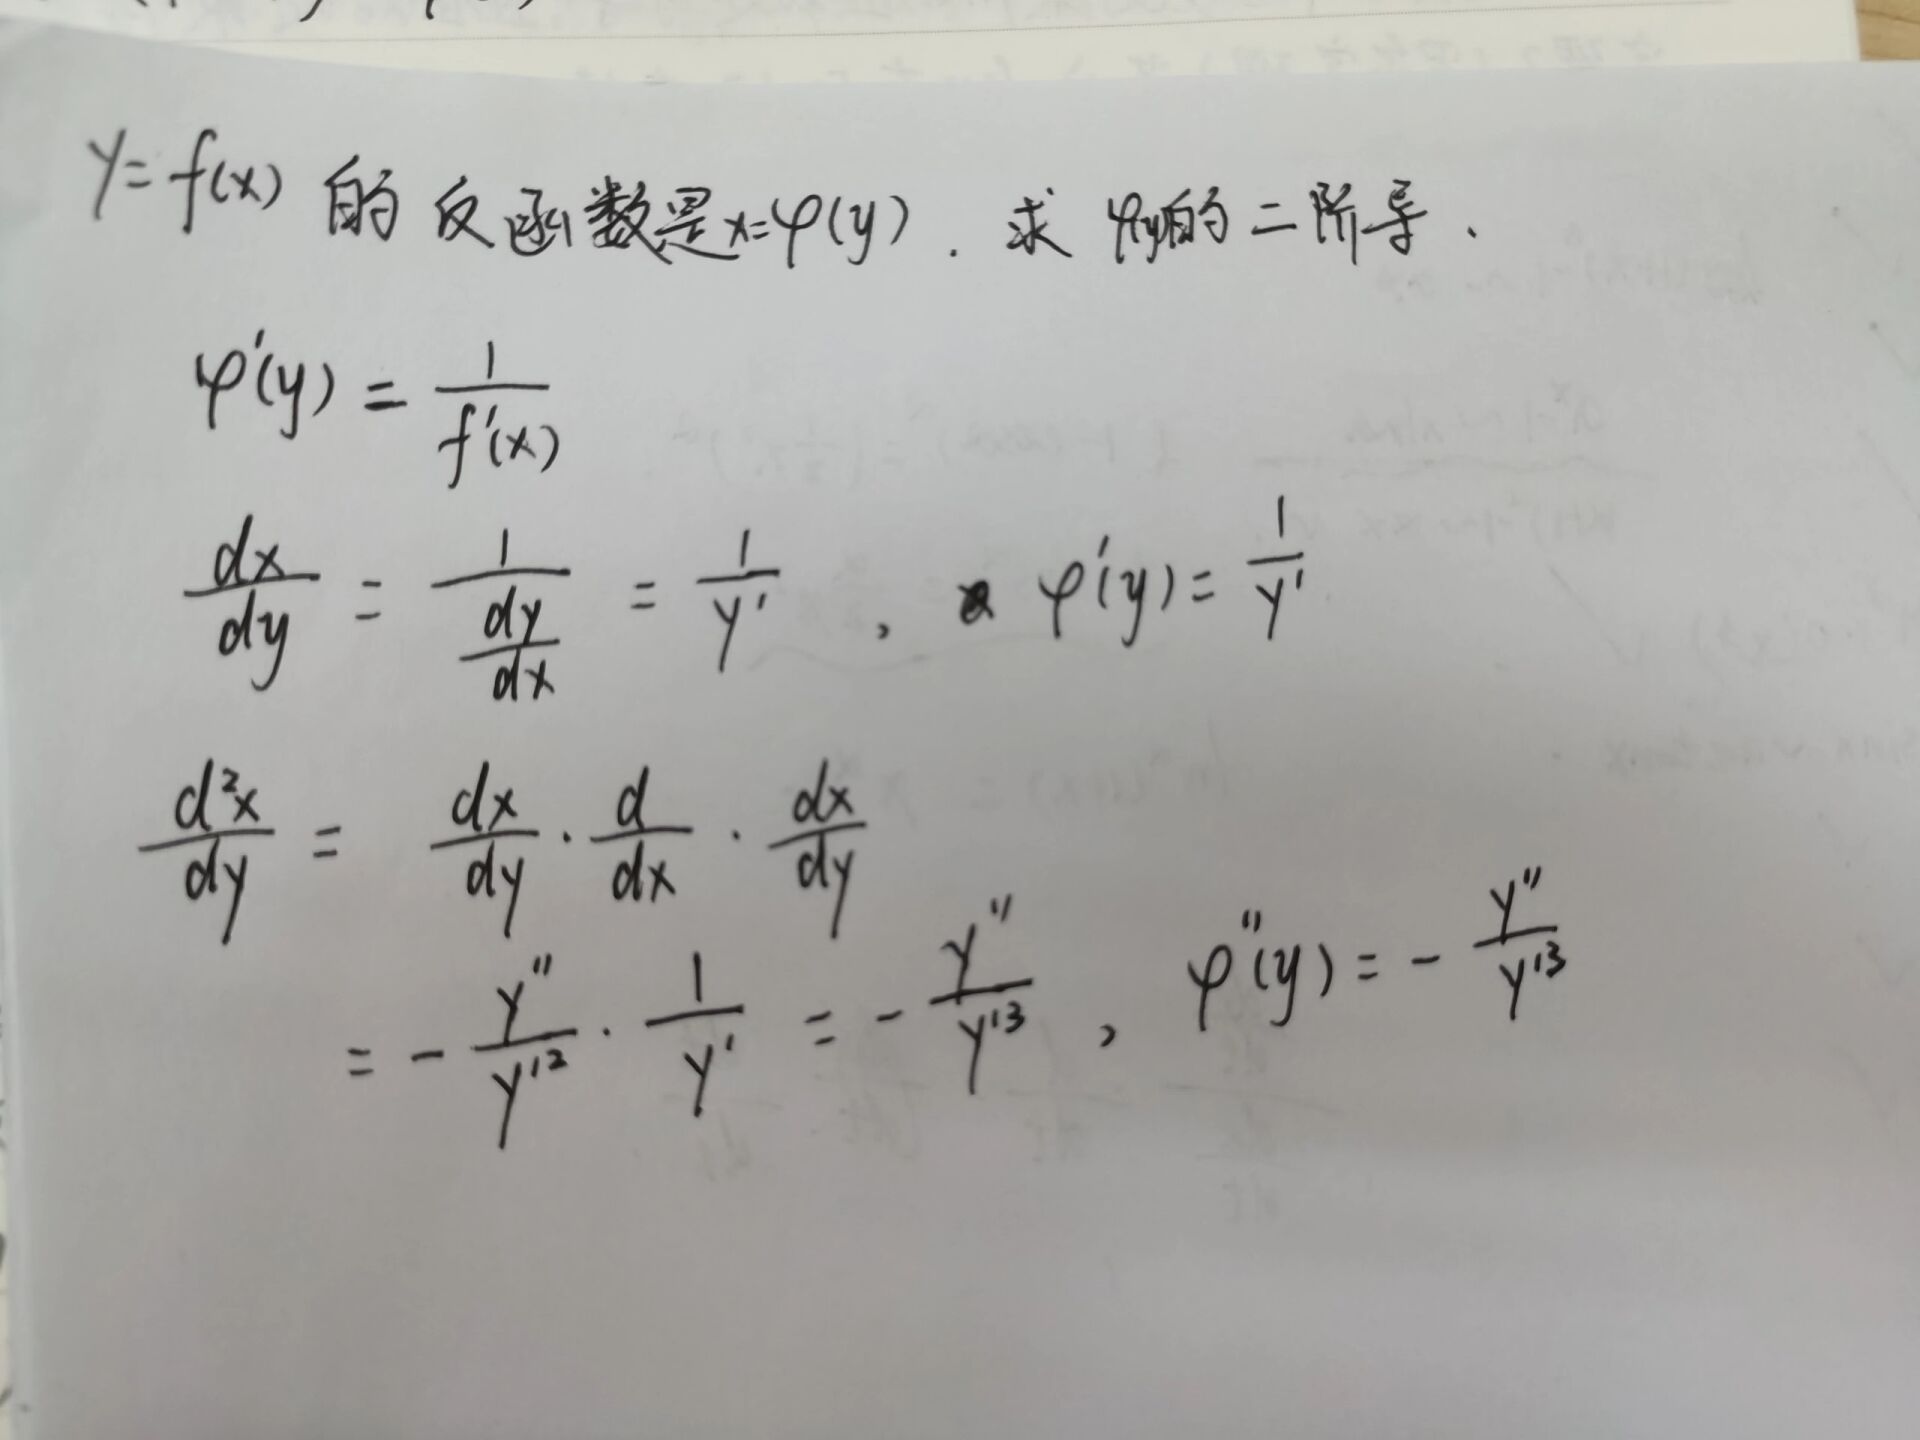 y=f(x) 的反函数是x=φ(y). 求φ(y)的二阶导.
φ'(y) = 1/f'(x)
dx/dy = 1/(dy/dx) = 1/y' , φ'(y) = 1/y'
d²x/dy = dx/dy · d/dx · dx/dy
= - y''/y'² · 1/y' = - y''/y'³ , φ''(y) = - y''/y'³